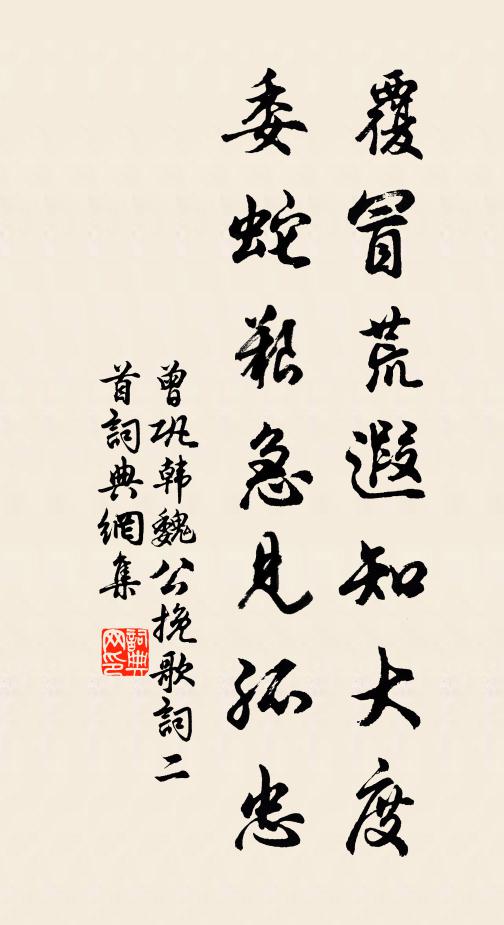 覆冒荒遐知大度
委蛇艱急見孤忠
曾巩韩魏公挽歌詞二
首詞典網集
詞典网印